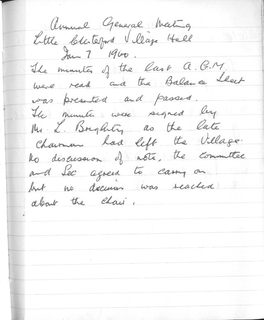 Annual General Meeting
Little Chesterford Village Hall
Jan 7 1960.
The minutes of the last A.G.M.
were read and the Balance Sheet
was presented and passed.
The minutes were signed by
Mr L. Brightey as the late
Chairman had left the Village.
No discussion of note, the committee
and Sec agreed to carry on
but no decision was reached
about the chair.